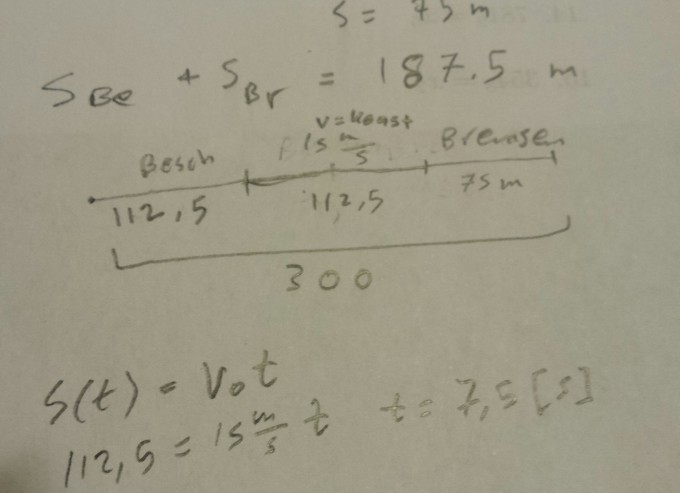 s = 75 m
S Be + S Br = 187.5 m
v = konst
Besch 15 m/s Bremsen
112,5 112,5 75 m
300
S(t) = V₀ t
112,5 = 15 m/s t t = 7,5 [s]